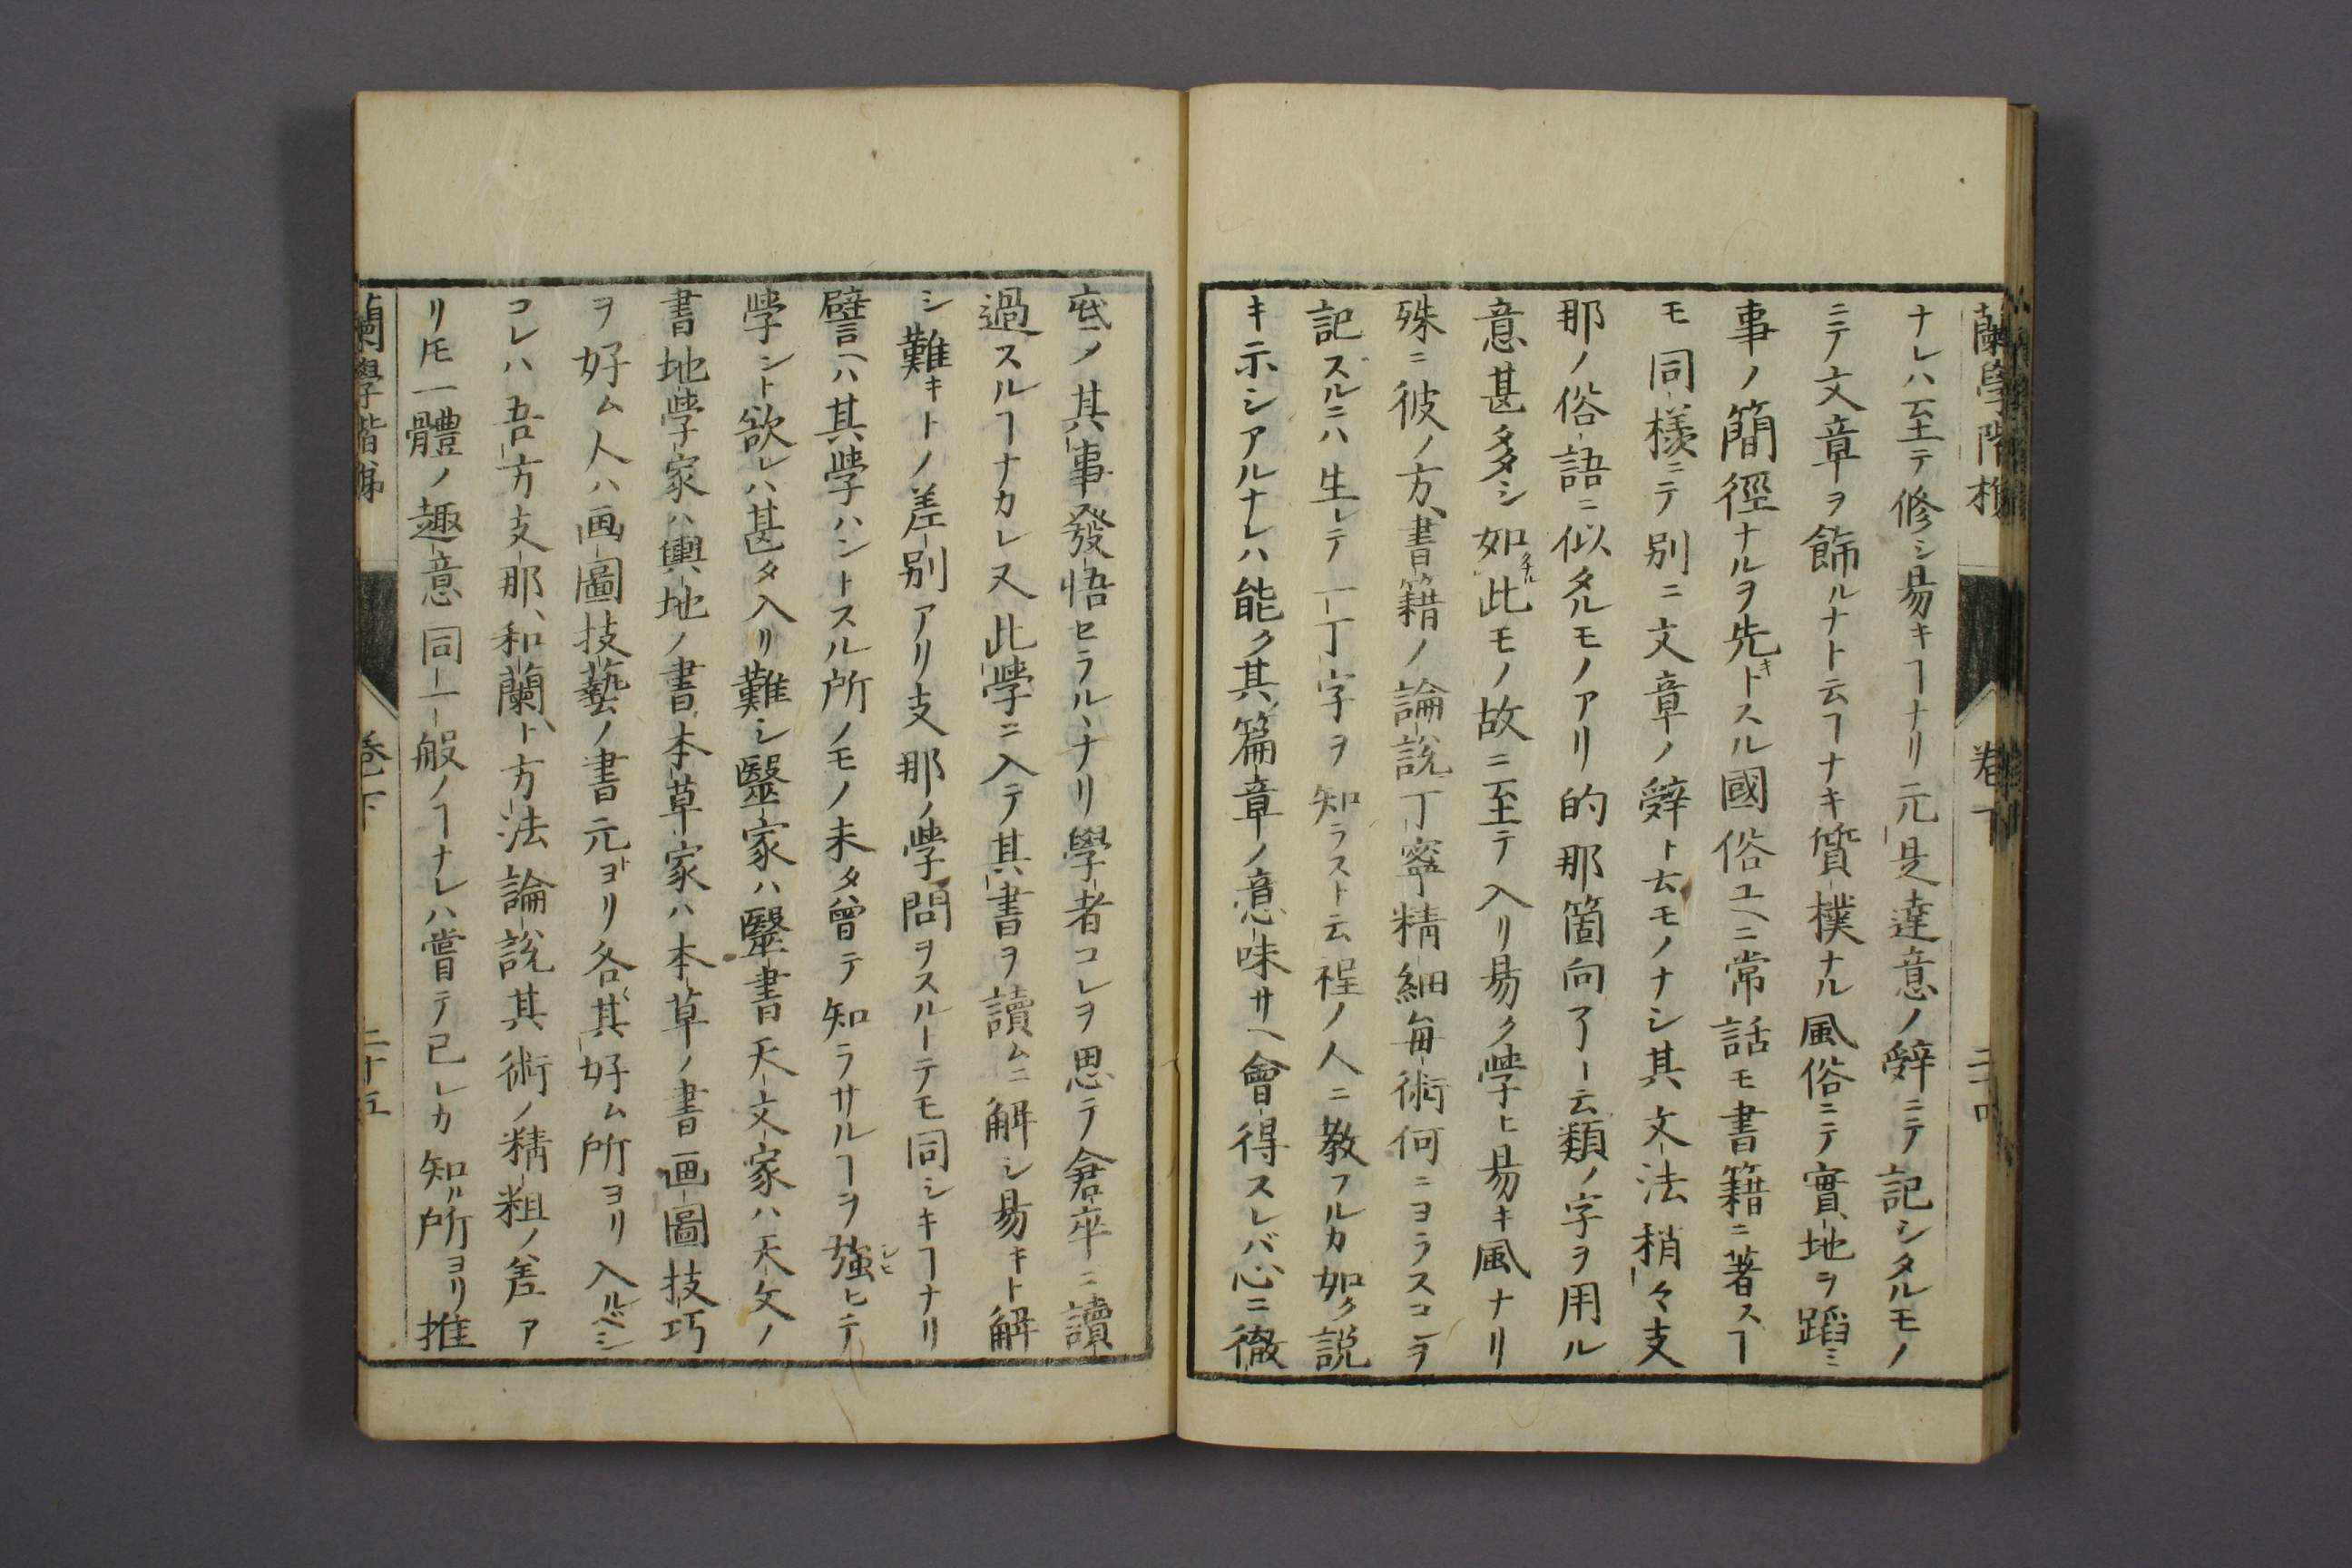 蘭學階梯 卷下 二十四
ナレハ至テ修シ易キヿナリ元是達意ノ辭ニテ記シタルモノ
ニテ文章ヲ飾ルナト云ヿナキ質樸ナル風俗ニテ實地ヲ蹈ミ
事ノ簡徑ナルヲ先キトスル國俗ユヘニ常話モ書籍ニ著スヿ
モ同樣ニテ別ニ文章ノ辭ト云モノナシ其文法稍々支
那ノ俗語ニ似タルモノアリ的那箇向了ー云類ノ字ヲ用ル
意甚多シ如此クナルモノ故ニ至テ入リ易ク學ヒ易キ風ナリ
殊ニ彼ノ方書籍ノ論說丁寧精細每術何ニヨラスコヽヲ
記スルニハ生レテ一丁字ヲ知ラスト云程ノ人ニ教フルカ如ク説
キ示シアルナレハ能ク其篇章ノ意味サヘ會得スレバ心ニ徹
底ノ其事發悟セラルヽナリ學者コレヲ思テ倉卒ニ讀
過スルヿナカレ又此學ニ入テ其書ヲ讀ムニ解シ易キト解
シ難キトノ差別アリ支那ノ学問ヲスルーテモ同シキヿナリ
譬ヘハ其學ハントスル所ノモノ未タ曾テ知ラサルヿヲ強シヒヒテ
學ント欲レハ甚タ入リ難シ醫家ハ醫書天文家ハ天文ノ
書地學家ハ輿地ノ書本草家ハ本草ノ書画圖技巧
ヲ好ム人ハ画圖技藝ノ書元トヨリ各其好ム所ヨリ入ルベシ
コレハ吾方支那、和蘭ト方法論說其術ノ精粗ノ差ア
リ𪜈一體ノ趣意同一般ノヿナレハ嘗テ已レカ知ル所ヨリ推
蘭學階梯 卷下 二十五